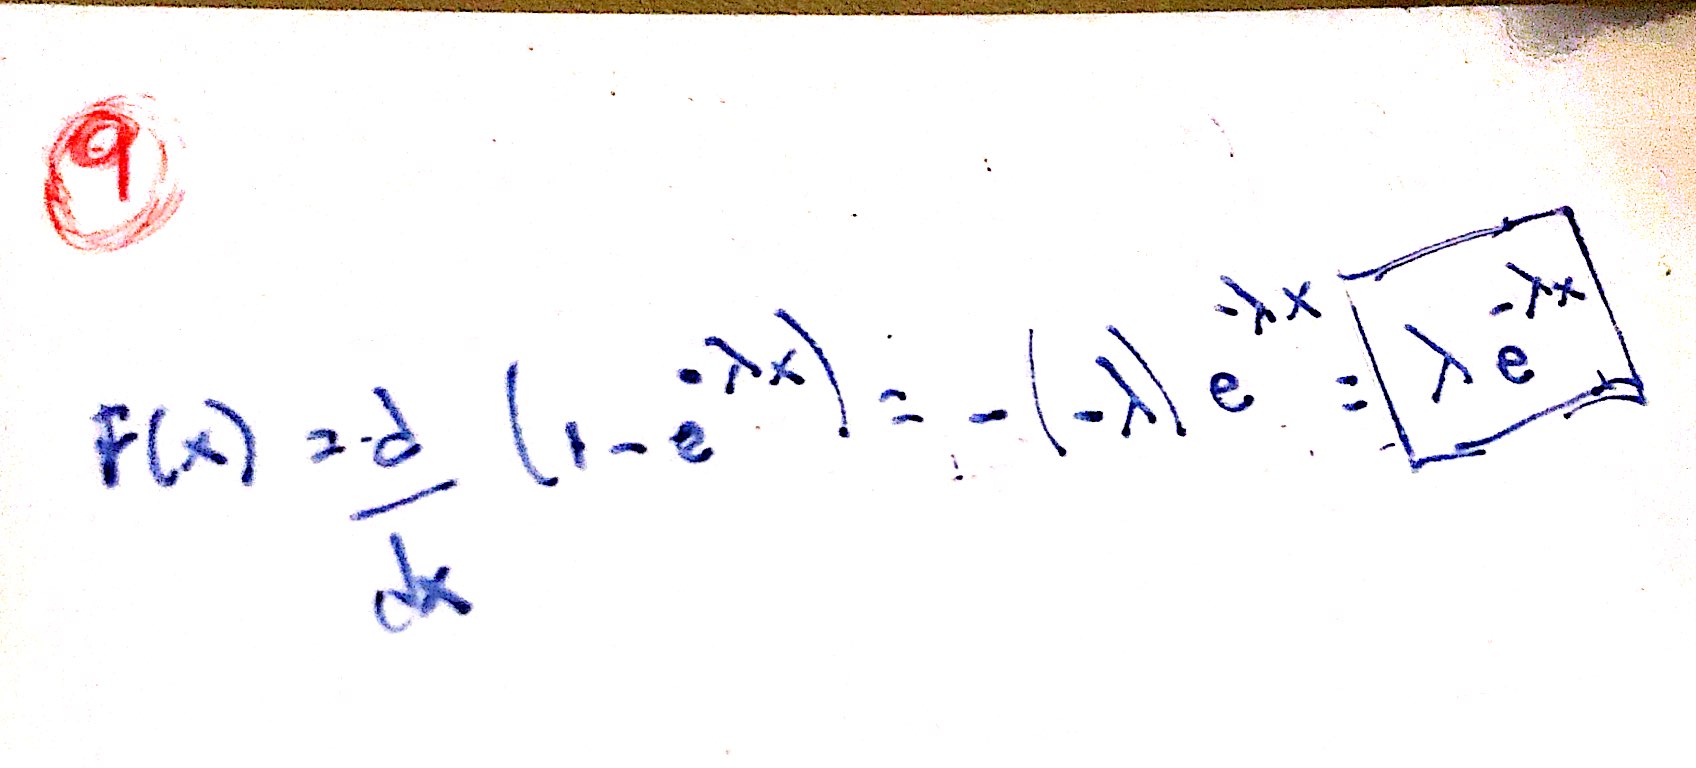 9
F(x) = d/dx (1 - e^{-λx}) = -(-λ) e^{-λx} = λ e^{-λx}